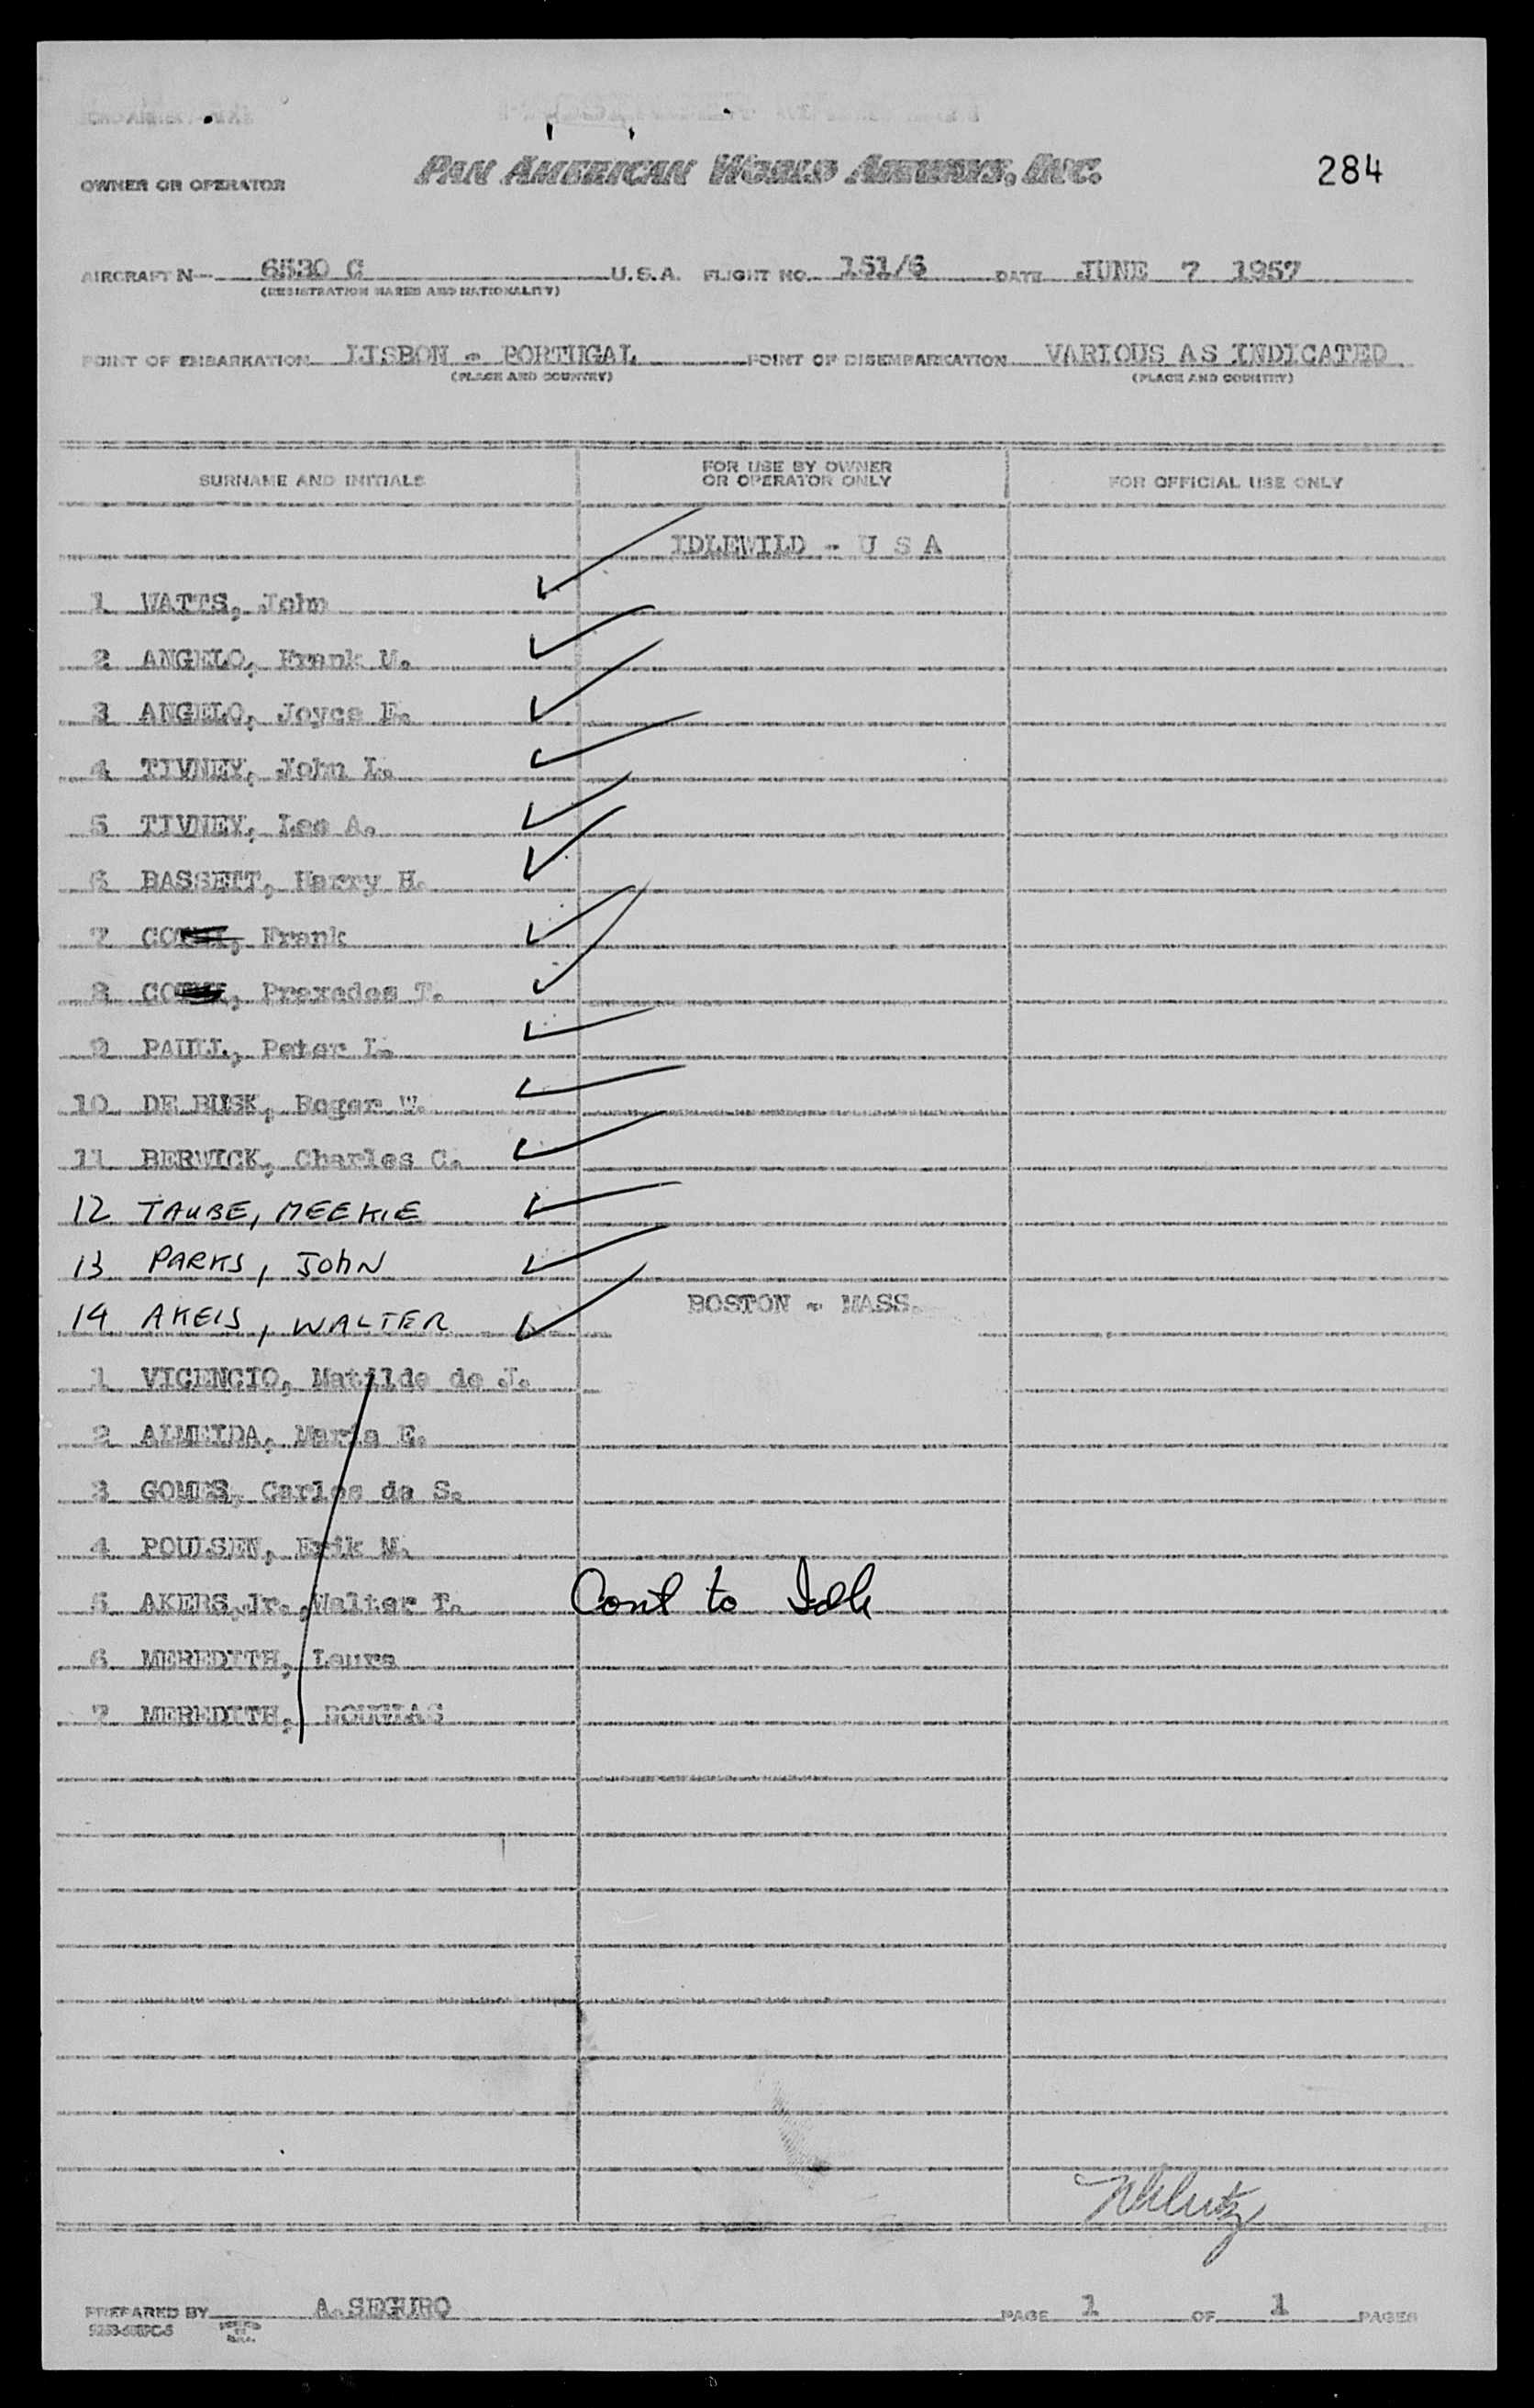 284
OWNER OR OPERATOR PAN AMERICAN WORLD AIRWAYS, INC.
AIRCRAFT N- 6530 C U.S.A. FLIGHT NO. 151/6 DATE JUNE 7 1957
(REGISTRATION MARKS AND NATIONALITY)
POINT OF EMBARKATION LISBON - PORTUGAL POINT OF DISEMBARKATION VARIOUS AS INDICATED
(PLACE AND COUNTRY) (PLACE AND COUNTRY)
SURNAME AND INITIALS FOR USE BY OWNER OR OPERATOR ONLY FOR OFFICIAL USE ONLY
IDLEWILD - U S A
1 WATTS, John
2 ANGELO, Frank M.
3 ANGELO, Joyce E.
4 TIVNEY, John L.
5 TIVNEY, Leo A.
6 BASSETT, Harry H.
7 Frank
8 Praxedes T.
9 PAULL, Peter L.
10 DE BUSK, Roger W.
11 BERWICK, Charles C.
12 TAUBE, MEEKIE
13 PARKS, JOHN
BOSTON - MASS.
14 AKEIS, WALTER
1 VICENCIO, Matilde de J.
2 ALMEIDA, Maria E.
3 GOMES, Carlos da S.
4 POULSEN, Erik M.
5 AKERS, Jr., Walter T. Cont to Idle
6 MEREDITH, Laura
7 MEREDITH, DOUGLAS
PREPARED BY A. SEGURO PAGE 1 OF 1 PAGES